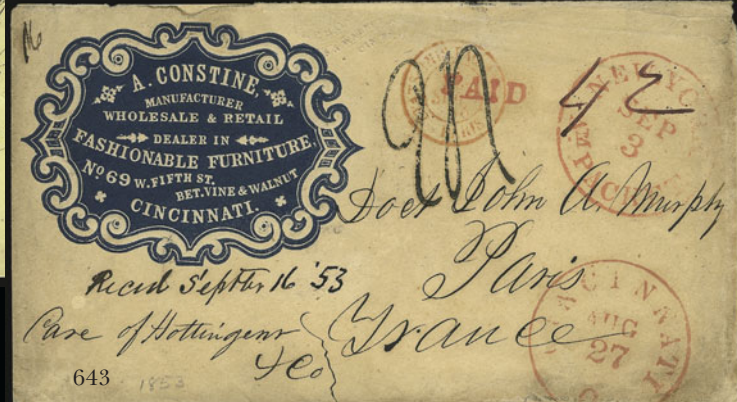 A. CONSTINE,
MANUFACTURER
WHOLESALE & RETAIL
DEALER IN
FASHIONABLE FURNITURE,
No 69 W. FIFTH ST.
BET. VINE & WALNUT
CINCINNATI.
PAID
42
NEW YORK
SEP
3
PACKET
Doct John A. Murphy
Paris
France
Recd Septber 16 '53
Care of Hottinguer
& Co
CINCINNATI
AUG
27
O
643
1853